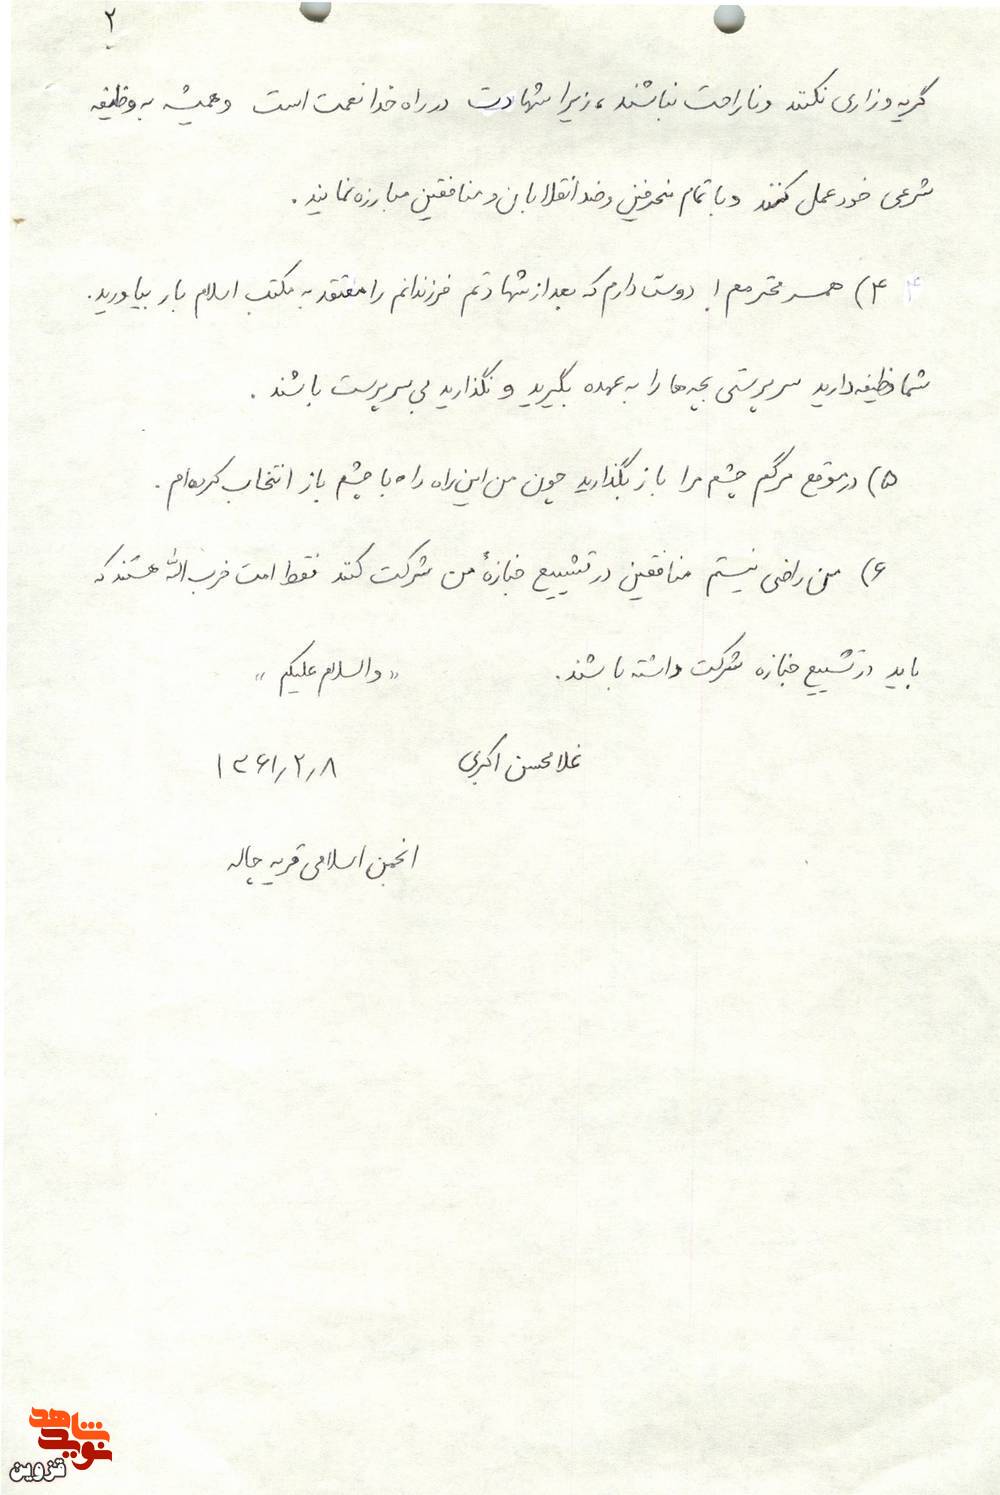 ۲
گریه و زاری نکنند و ناراحت نباشند، زیرا شهادت در راه خدا نعمت است و همیشه به وظیفه
شرعی خود عمل کنند و با تمام منحرفین و ضد انقلابان و منافقین مبارزه نمایند.
۴) همسر محترمم! دوست دارم که بعد از شهادتم فرزندانم را معتقد به مکتب اسلام بار بیاورید.
شما وظیفه دارید سرپرستی بچه‌ها را به عهده بگیرید و نگذارید بی‌سرپرست باشند.
۵) در موقع مرگم چشم مرا باز بگذارید چون من این راه را با چشم باز انتخاب کرده‌ام.
۶) من راضی نیستم منافقین در تشییع جنازهٔ من شرکت کنند فقط امت حزب الله هستند که
باید در تشییع جنازه شرکت داشته باشند. «والسلام علیکم»
غلامحسن اکبری ۱۳۶۱/۲/۸
انجمن اسلامی قریه چاله
نوید شاهد
قزوین